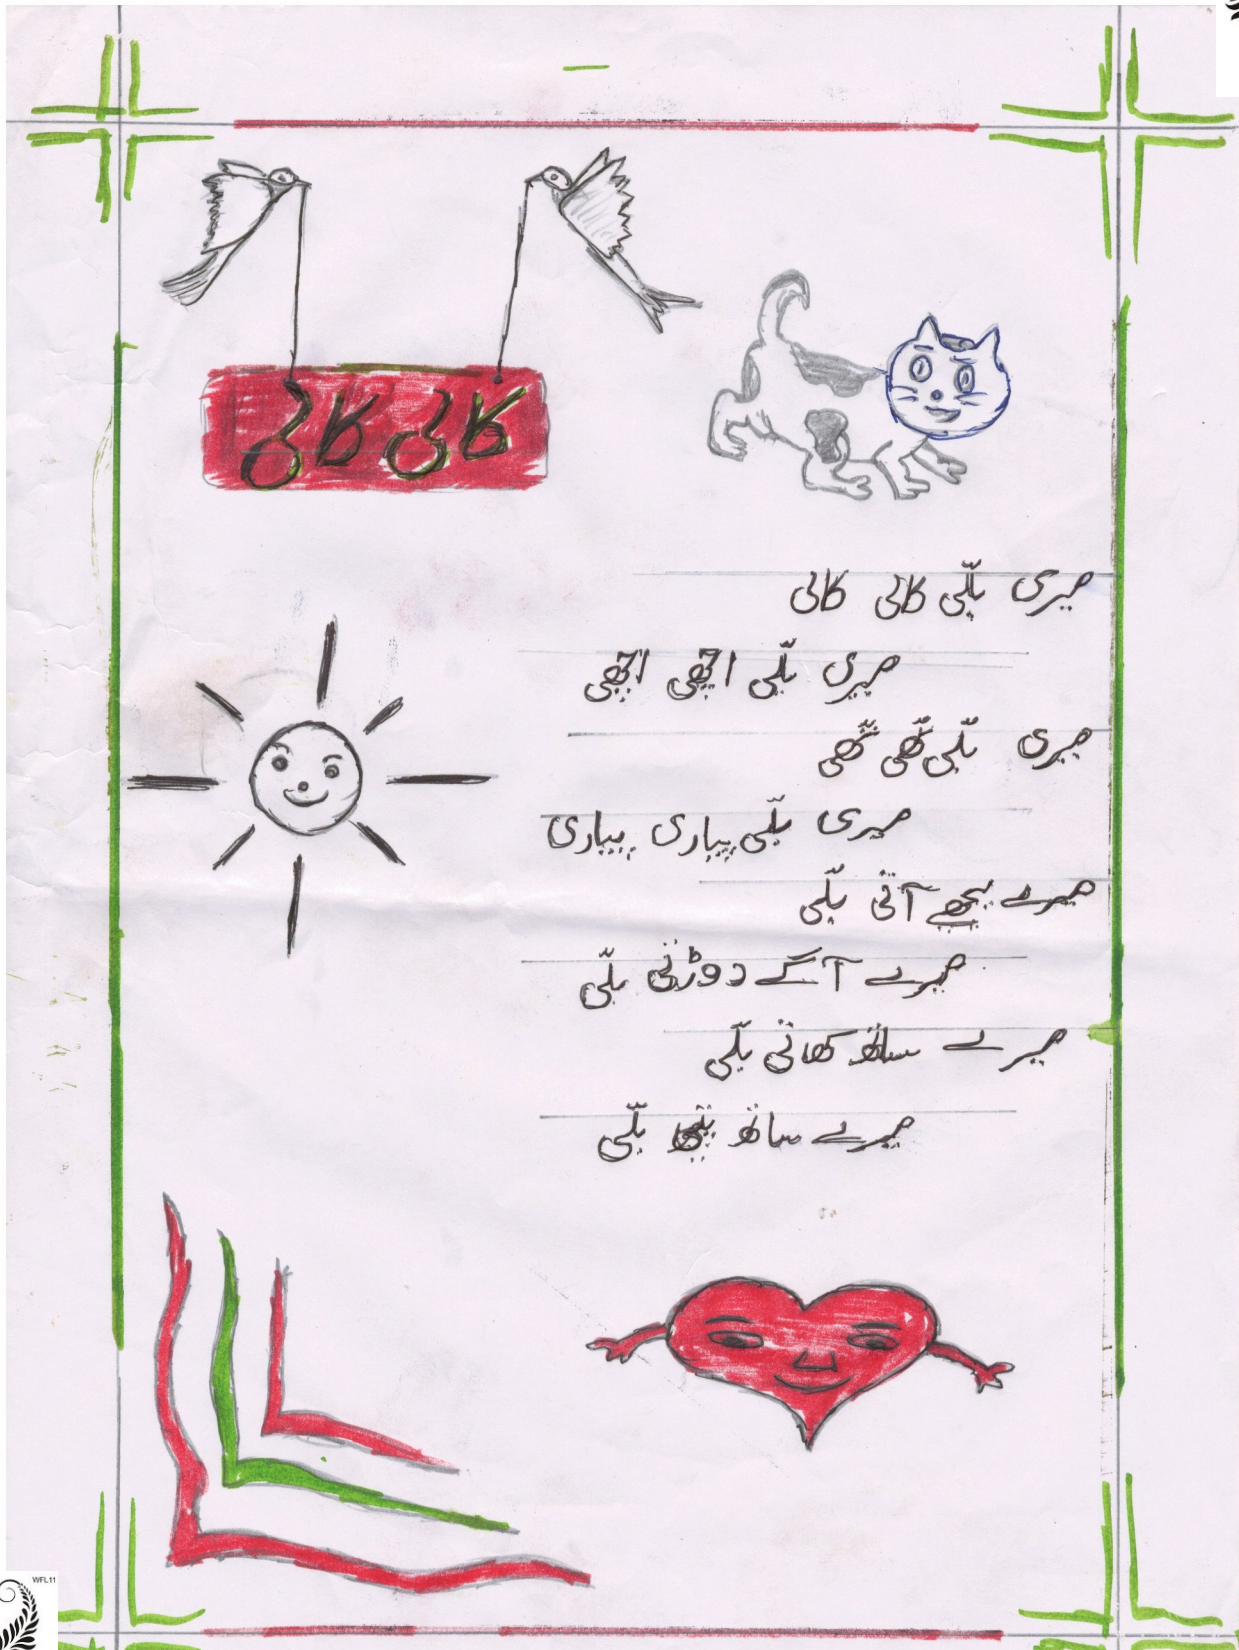 کالی کالی
میری بلّی کالی کالی
میری بلّی اچھی اچھی
میری بلّی نّھی نّھی
میری بلّی پیاری پیاری
میرے پیچھے آتی بلّی
میرے آگے دوڑتی بلّی
میرے ساتھ کھاتی بلّی
میرے ساتھ بلّی
WFL11